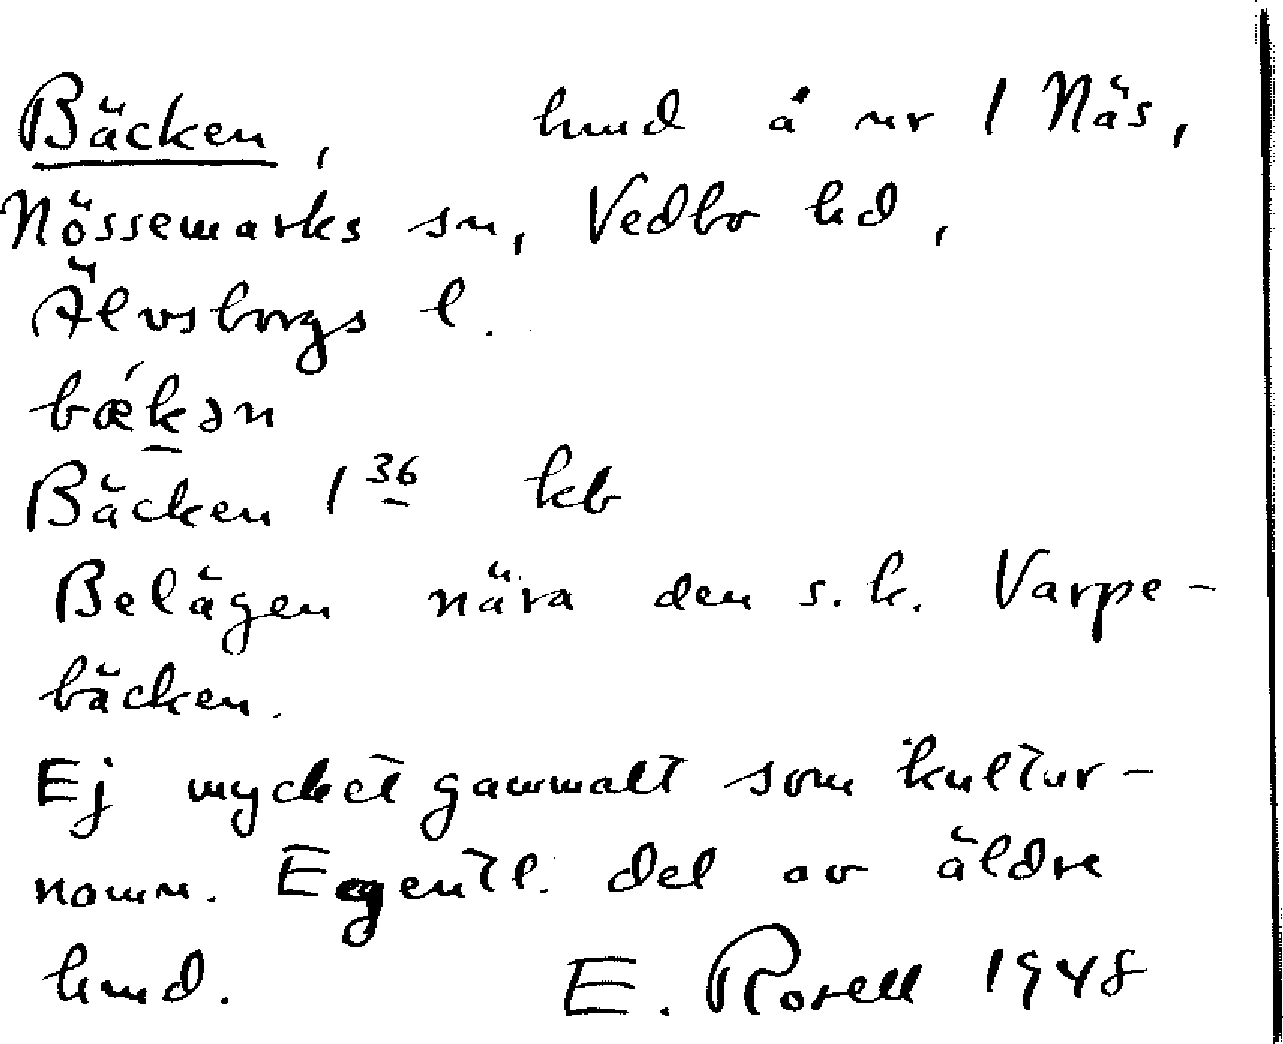 Bäcken, hmd å nr 1 Näs,
Nössemarks sn, Vedbo hd,
Älvsborgs l.
bǽkən
Bäcken 1 36 kb
Belägen nära den s.k. Varpe-
bäcken.
Ej mycket gammalt som kultur-
namn. Egentl. del av äldre
hmd. E. Rosell 1948